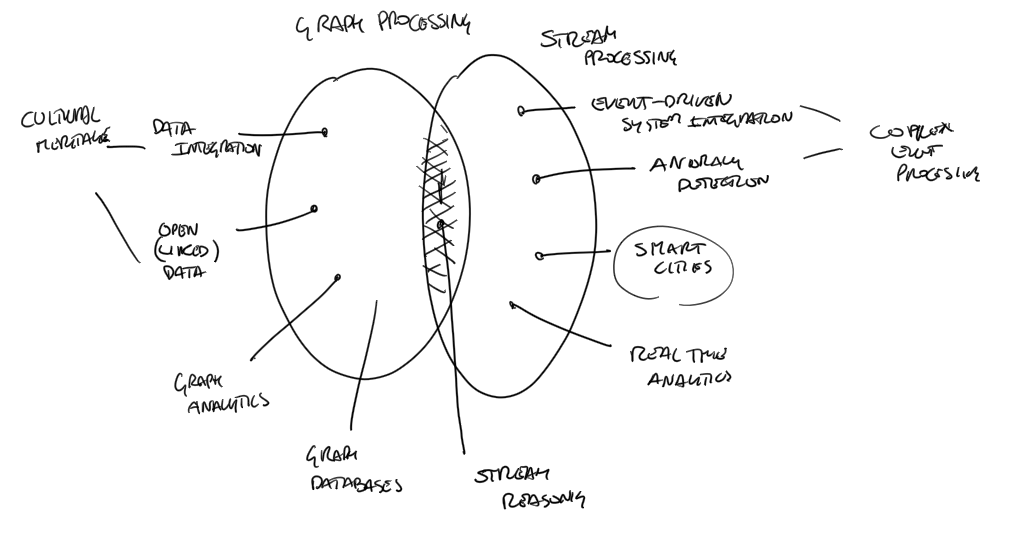 GRAPH PROCESSING
STREAM
PROCESSING
CULTURAL
HERITAGE
DATA
INTEGRATION
OPEN
(LINKED)
DATA
GRAPH
ANALYTICS
GRAPH
DATABASES
STREAM
REASONING
EVENT-DRIVEN
SYSTEM INTEGRATION
ANOMALY
DETECTION
SMART
CITIES
REAL TIME
ANALYTICS
COMPLEX
EVENT
PROCESSING